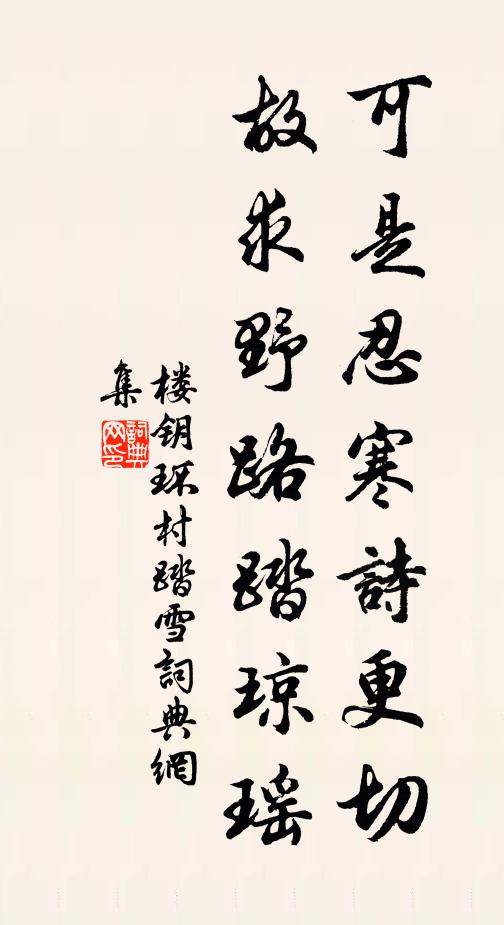 可是忍寒詩更切
故求野路踏琼瑶
楼钥环村踏雪詞典網
集
詞典
网印